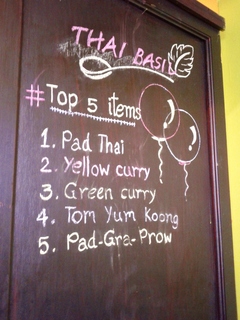 THAI BASIL
# Top 5 items
1. Pad Thai
2. Yellow curry
3. Green curry
4. Tom Yum Koong
5. Pad-Gra-Prow